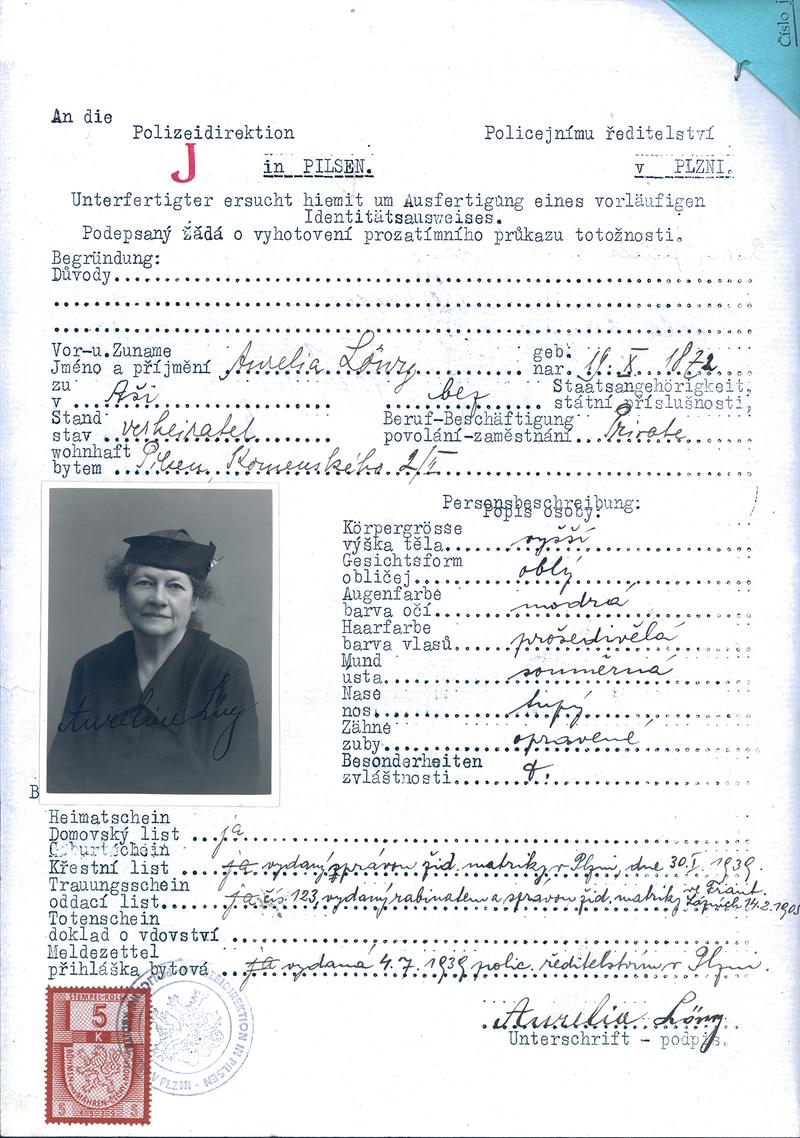 Číslo j
An die
Polizeidirektion Policejnímu ředitelství
J in PILSEN. v PLZNI.
Unterfertigter ersucht hiemit um Ausfertigung eines vorläufigen
Identitätsausweises.
Podepsaný žádá o vyhotovení prozatímního průkazu totožnosti.
Begründung:
Důvody
Vor-u.Zuname geb.
Jméno a příjmení Aurelia Löwy nar. X 1872
zu Staatsangehörigkeit,
v Aši bez státní příslušnosti,
Stand Beruf-Beschäftigung
stav verheiratet povolání-zaměstnání Private
wohnhaft
bytem Pilsen, Komenského 2/I
Personsbeschreibung:
Popis osoby:
Körpergrösse
výška těla vyšší
Gesichtsform
obličej oblý
Augenfarbe
barva očí modrá
Haarfarbe
barva vlasů prošedivělá
Mund
ústa souměrná
Nase
nos tupý
Zähne
zuby opravené
Besonderheiten
zvláštnosti
Aurelia Löwy
B
Heimatschein
Domovský list ja
Geburtschein
Křestní list ja vydaný správou žid. matriky v Plzni, dne 30.I. 1939
Trauungsschein
oddací list ja čís 123, vydaný rabinátem a správou žid. matriky ve Frant. Lázních 14.2.1905
Totenschein
doklad o vdovství
Meldezettel
přihláška bytová ja vydaná 4.7.1939 polic. ředitelstvím v Plzni.
Aurelia Löwy
Unterschrift - podpis.
5
K
POLIZEIDIREKTION IN PILSEN
V PLZNI